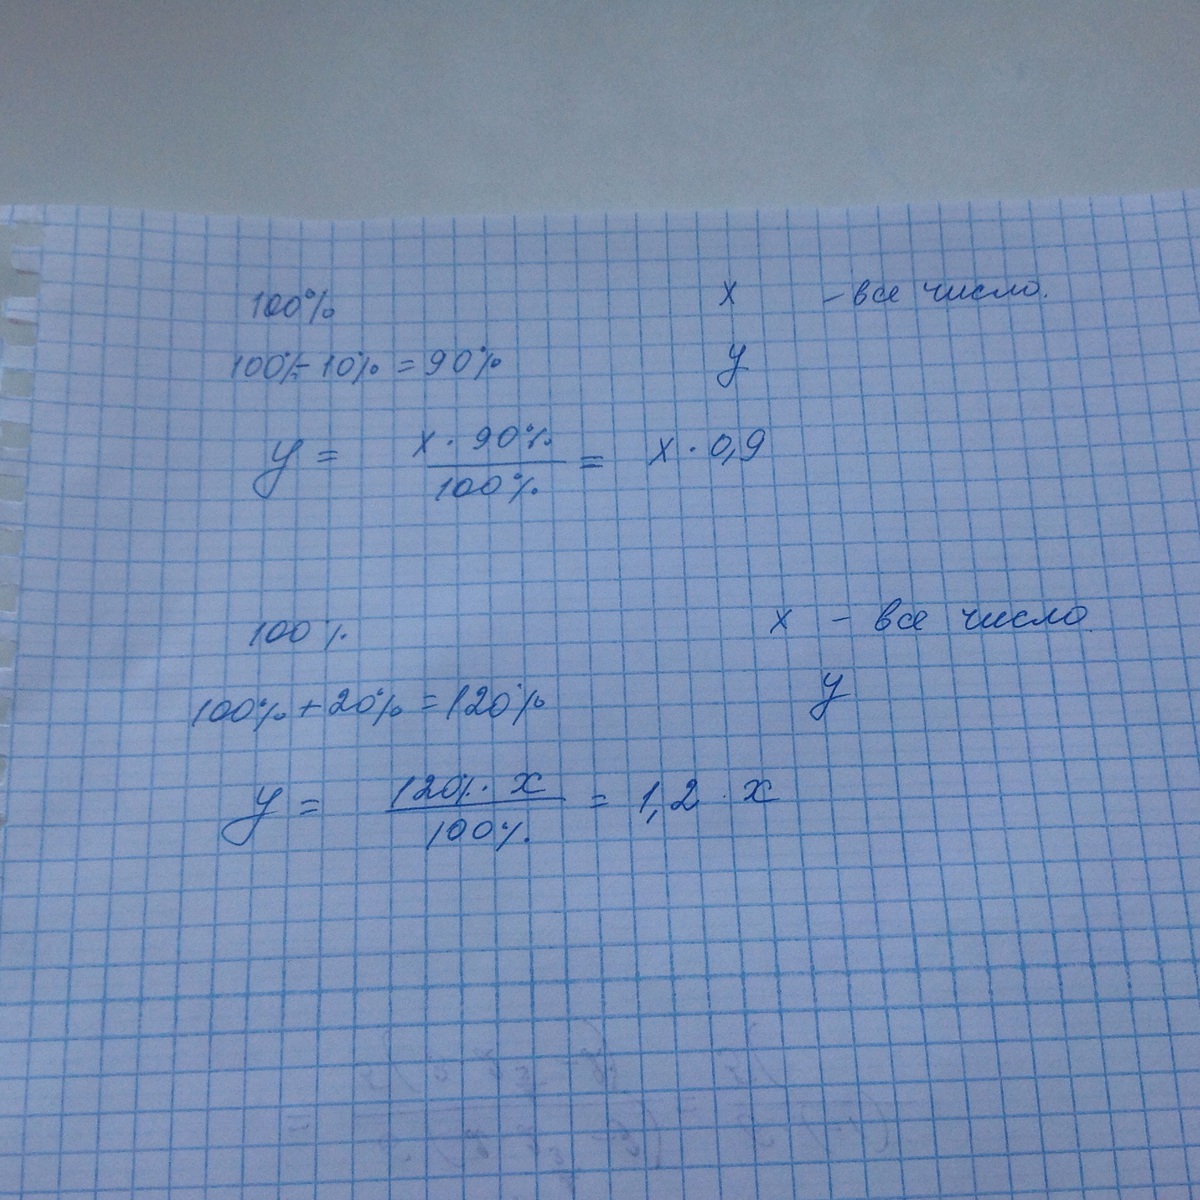 100% x - все число.
100% - 10% = 90% y
y = x · 90% / 100% = x · 0,9
100% x - все число
100% + 20% = 120% y
y = 120% · x / 100% = 1,2 · x